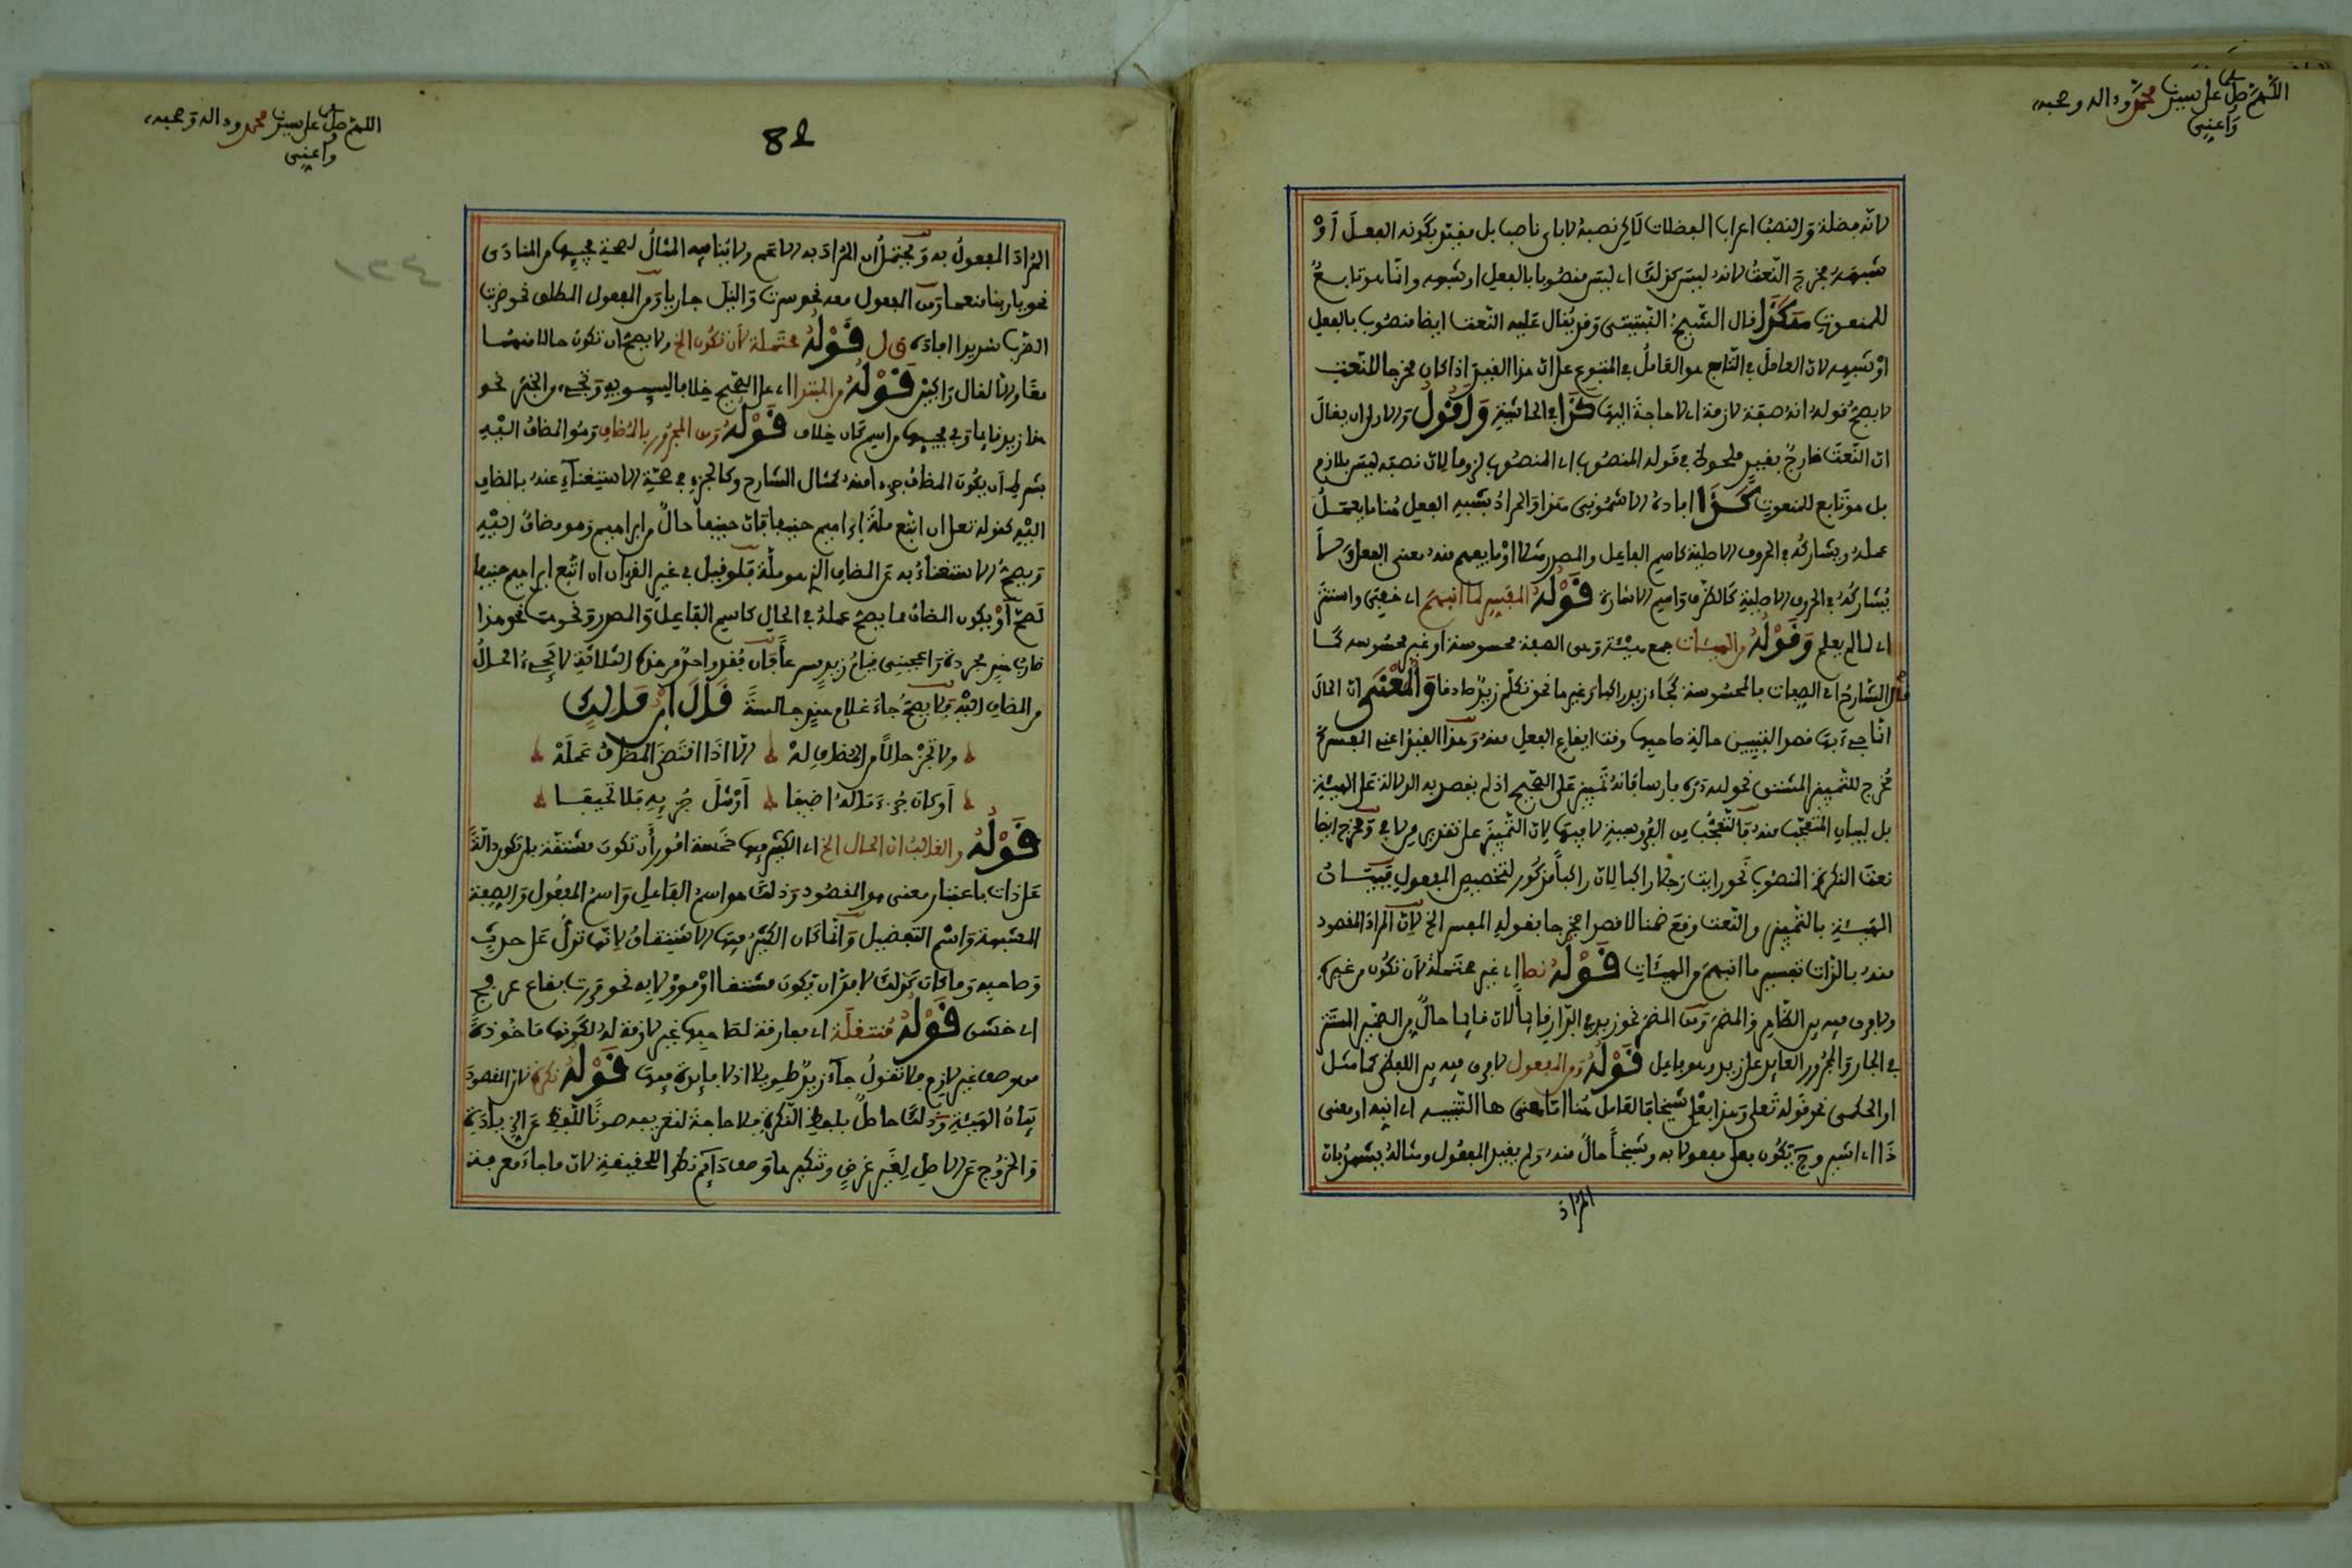 اللهم صل على سيدنا محمد وءاله وصحبه
واعني
لانه فضلة والنصب اعراب الفضلات لاكن نصبه لا باى ناصب بل مقيد بكونه الفعل أو
شبهه مخرج النعت لانه ليس كذلك اى ليس منصوبا بالفعل او شبهه وانما هو تابع
للمنعوت هكذا قال الشيخ النبتيتى وقد يقال عليه النعت ايضا منصوب بالفعل
او شبهه لان العامل في التابع هو العامل في المتبوع على ان هذا القيد اذا كان مخرجا للنعت
لا يصح قوله انه صفة لازمة اى لا حاجة اليها كذا في الحاشية وأقول والاولى ان يقال
ان النعت خارج بقيد ملحوظ في قوله المنصوب اى المنصوب لزوما لان نصبه ليس بلازم
بل هو تابع للمنعوت كذا افاده الاشمونى هذا والمراد بشبه الفعل هنا ما يعمل
عمله ويشاركه في الحروف الاصلية كاسم الفاعل والمصدر مثلا او ما يفهم منه معنى الفعل ولا
يشاركه في الحروف الاصلية كالظرف واسم الاشارة قوله المفسر لما انبهم اى خفى واستتر
اى لما لم يعلم وقوله من الهيئات جمع هيئة وهى الصفة محسوسة او غير محسوسه كما
قال الشارح اى الصفات فالمحسوسة كجاء زيد راكبا وغيرها نحو تكلم زيد صادقا والمعنى ان الحال
انما جىء بها قصد التبيين حالة صاحبها وقت ايقاع الفعل منه وهذا القيد اعنى المفسر
مخرج للتمييز المشتق نحو لله دره فارسا فانه تمييز على الصحيح اذ لم يقصد به الدلالة على الهيئة
بل لبيان المتعجب منه والتعجب من الفروسية لا فيها لان التمييز على تقدير من لا في ومخرج ايضا
نعت النكرة المنصوب نحو رايت رجلا راكبا لان راكبا مذكور لتخصيص المفعول فبيان
الهيئة بالتمييز والنعت وقع ضمنا لا قصدا فخرجا بقوله المفسر الخ لان المراد المقصود
منه بالذات تفسير ما انبهم من الهيئات قوله نصا اى غير محتملة لان تكون من غيره
ولا فرق فيه بين الظاهر والمضمر ومن المضمر نحو زيد في الدار قائما لان قائما حال من الضمير المستتر
في الجار والمجرور العائد على زيد وهو فاعل قوله ومن المفعول لا فرق فيه بين اللفظى كما مثل
او الحكمى نحو قوله تعلى وهذا بعلى شيخا فالعامل هنا اما معنى ها التنبيه اى انبه او معنى
ذا اى اشير وح يكون بعلى مفعولا به وشيخا حال منه ولم يقيد المفعول ومثاله يشهر بان
المراد
اللهم صل على سيدنا محمد وءاله وصحبه
واعني
82
المراد المفعول به ويحتمل ان المراد به الاعم ولا ينافيه المثال لصحة مجيها من المنادى
نحو يا ربنا منعما ومن المفعول معه نحو سرت والنيل جاريا ومن المفعول المطلق نحو ضربت
الضرب شديدا افاده ق ل قوله محتملة لان تكون الخ ولا يصح ان تكون حالا منهما
معا والا لقال راكبين قوله من المبتدا اى على الصحيح خلافا لسيبويه وتجىء من الخبر نحو
هذا زيد قائما وفي مجيها من اسم كان خلاف قوله ومن المجرور بالمضاف وهو المضاف اليه
بشرط ان يكون المضاف جزءا منه كمثال الشارح وكالجزء في صحة الاستغناء عنه بالمضاف
اليه كقوله تعلى ان اتبع ملة ابراهيم حنيفا فان حنيفا حال من ابراهيم وهو مضاف اليه
ويصح الاستغناء به عن المضاف الذى هو ملة فلو قيل في غير القرءان ان اتبع ابراهيم حنيفا
لصح أو يكون المضاف مما يصح عمله في الحال كاسم الفاعل والمصدر ونحوه نحو هذا
ضارب هند مجردة واعجبنى قيام زيد مسرعا فان فقد واحد من هذه الثلاثة لا تجىء الحال
من المضاف اليه فلا يصح جاء غلام هند جالسة قال ابن مالك
ولا تجز حالا من المضاف له الا اذا اقتضى المضاف عمله
أو كان جزء ماله اضيفا أو مثل جزئه فلا تحيفا
قوله والغالب ان الحال الخ اى الكثير فيها خمسة امور أن تكون مشتقة بان تكون دالة
على ذات باعتبار معنى هو المقصود وذلك هو اسم الفاعل واسم المفعول والصفة
المشبهة واسم التفضيل وانما كان الكثير فيها الاشتقاق لانها تدل على حدث
وصاحبه وما كان كذلك لا بد ان يكون مشتقا او مؤولا به نحو مررت بقاع عرفج
اى خشن قوله منتقلة اى مفارقة لصاحبها غير لازمة له لكونها ماخوذة
من وصف غير لازم فلا تقول جاء زيد طويلا اذ لا فائدة فيها قوله نكرة لان المقصود
بيان الهيئة وذلك حاصل بلفظ النكرة فلا حاجة لتعريفه صونا للفظ عن الزيادة
والخروج عن الاصل لغير غرض وتنكيرها وصف دائم نظرا للحقيقة لان ما جاء معرفة